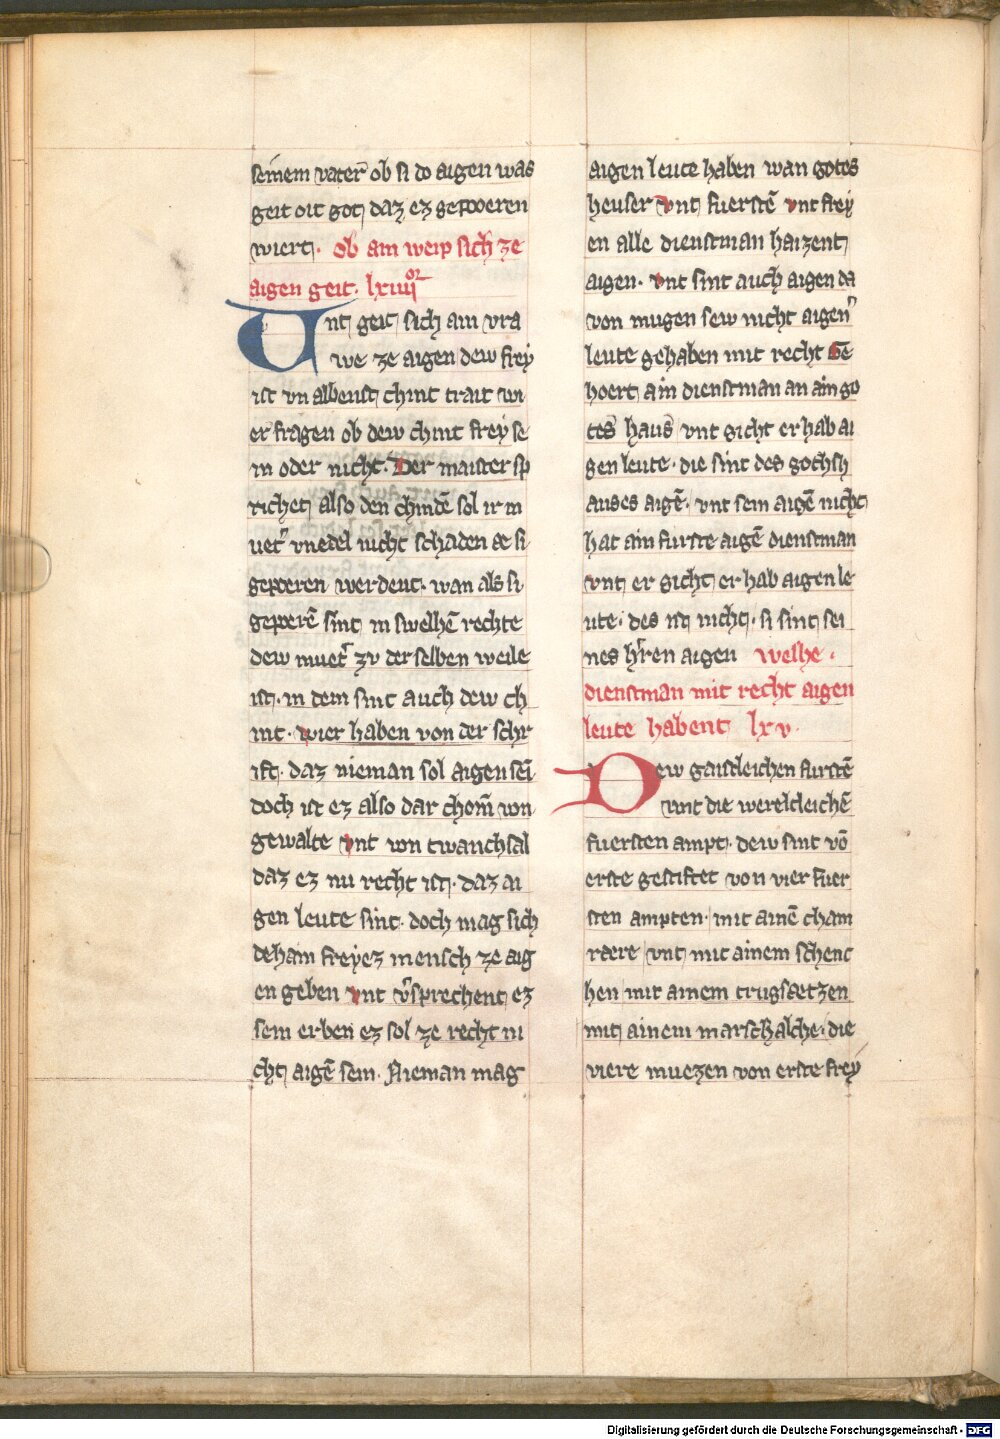 seinem vater ob si do aigen was
geit oit got daz ez gepoeren
wiert. ob ain weip sich ze
aigen geit. lxiiii or
Unt geit sich ain vra
we ze aigen dew frey
ist vn albenst chint trait wi
er fragen ob dew chint frey se
in oder nicht. Der maister sp
richet also den chindē sol ir m
uet̄ vnedel nicht schaden ae si
gepoeren werdent. wan als si
gepoerē sint in swelhē rechte
dew muet̄ zv der selben weile
ist. in dem sint auch dew ch
int. wier haben von der schr
ift. daz nieman sol aigen sēi
doch ist ez also dar chom̄ von
gewalte vnt von twanchsal
daz ez nu recht ist. daz ai
gen leute sint. doch mag sich
dehain freyez mensch ze aig
en geben vnt v̄sprechent ez
sein erben ez sol ze recht ni
cht aigē sein. Nieman mag
aigen leute haben wan gotes
heuser vnt fuerstē vnt frey
en alle dienstman haizent
aigen. vnt sint auch aigen da
von mugen sew nicht aigen̄
leute gehaben mit recht Ge
hoert ain dienstman an ain go
tes haus vnt gicht er hab ai
gen leute. die sint des gotzh
auses aigē. vnt sein aigē nicht
hat ain furste aigē dienstman
vnt er gicht er hab aigen le
ute. des ist nicht. si sint sei
nes h̄ren aigen welhe.
dienstman mit recht aigen
leute habent lxv.
Dew gaistleichen furstē
vnt die wereltleichē
fuersten ampt. dew sint vō
erste gestiftet von vier fuer
sten ampten. mit ainē cham
raere vnt mit ainem schenc
hen mit ainem trugsaetzen
mit ainem marschalche. die
viere muezen von erste frey
Digitalisierung gefördert durch die Deutsche Forschungsgemeinschaft - DFG